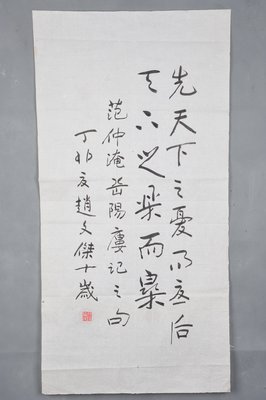 先天下之憂而憂后
天下之樂而樂
范仲淹岳陽樓記之句
丁卯夏趙文傑十歲